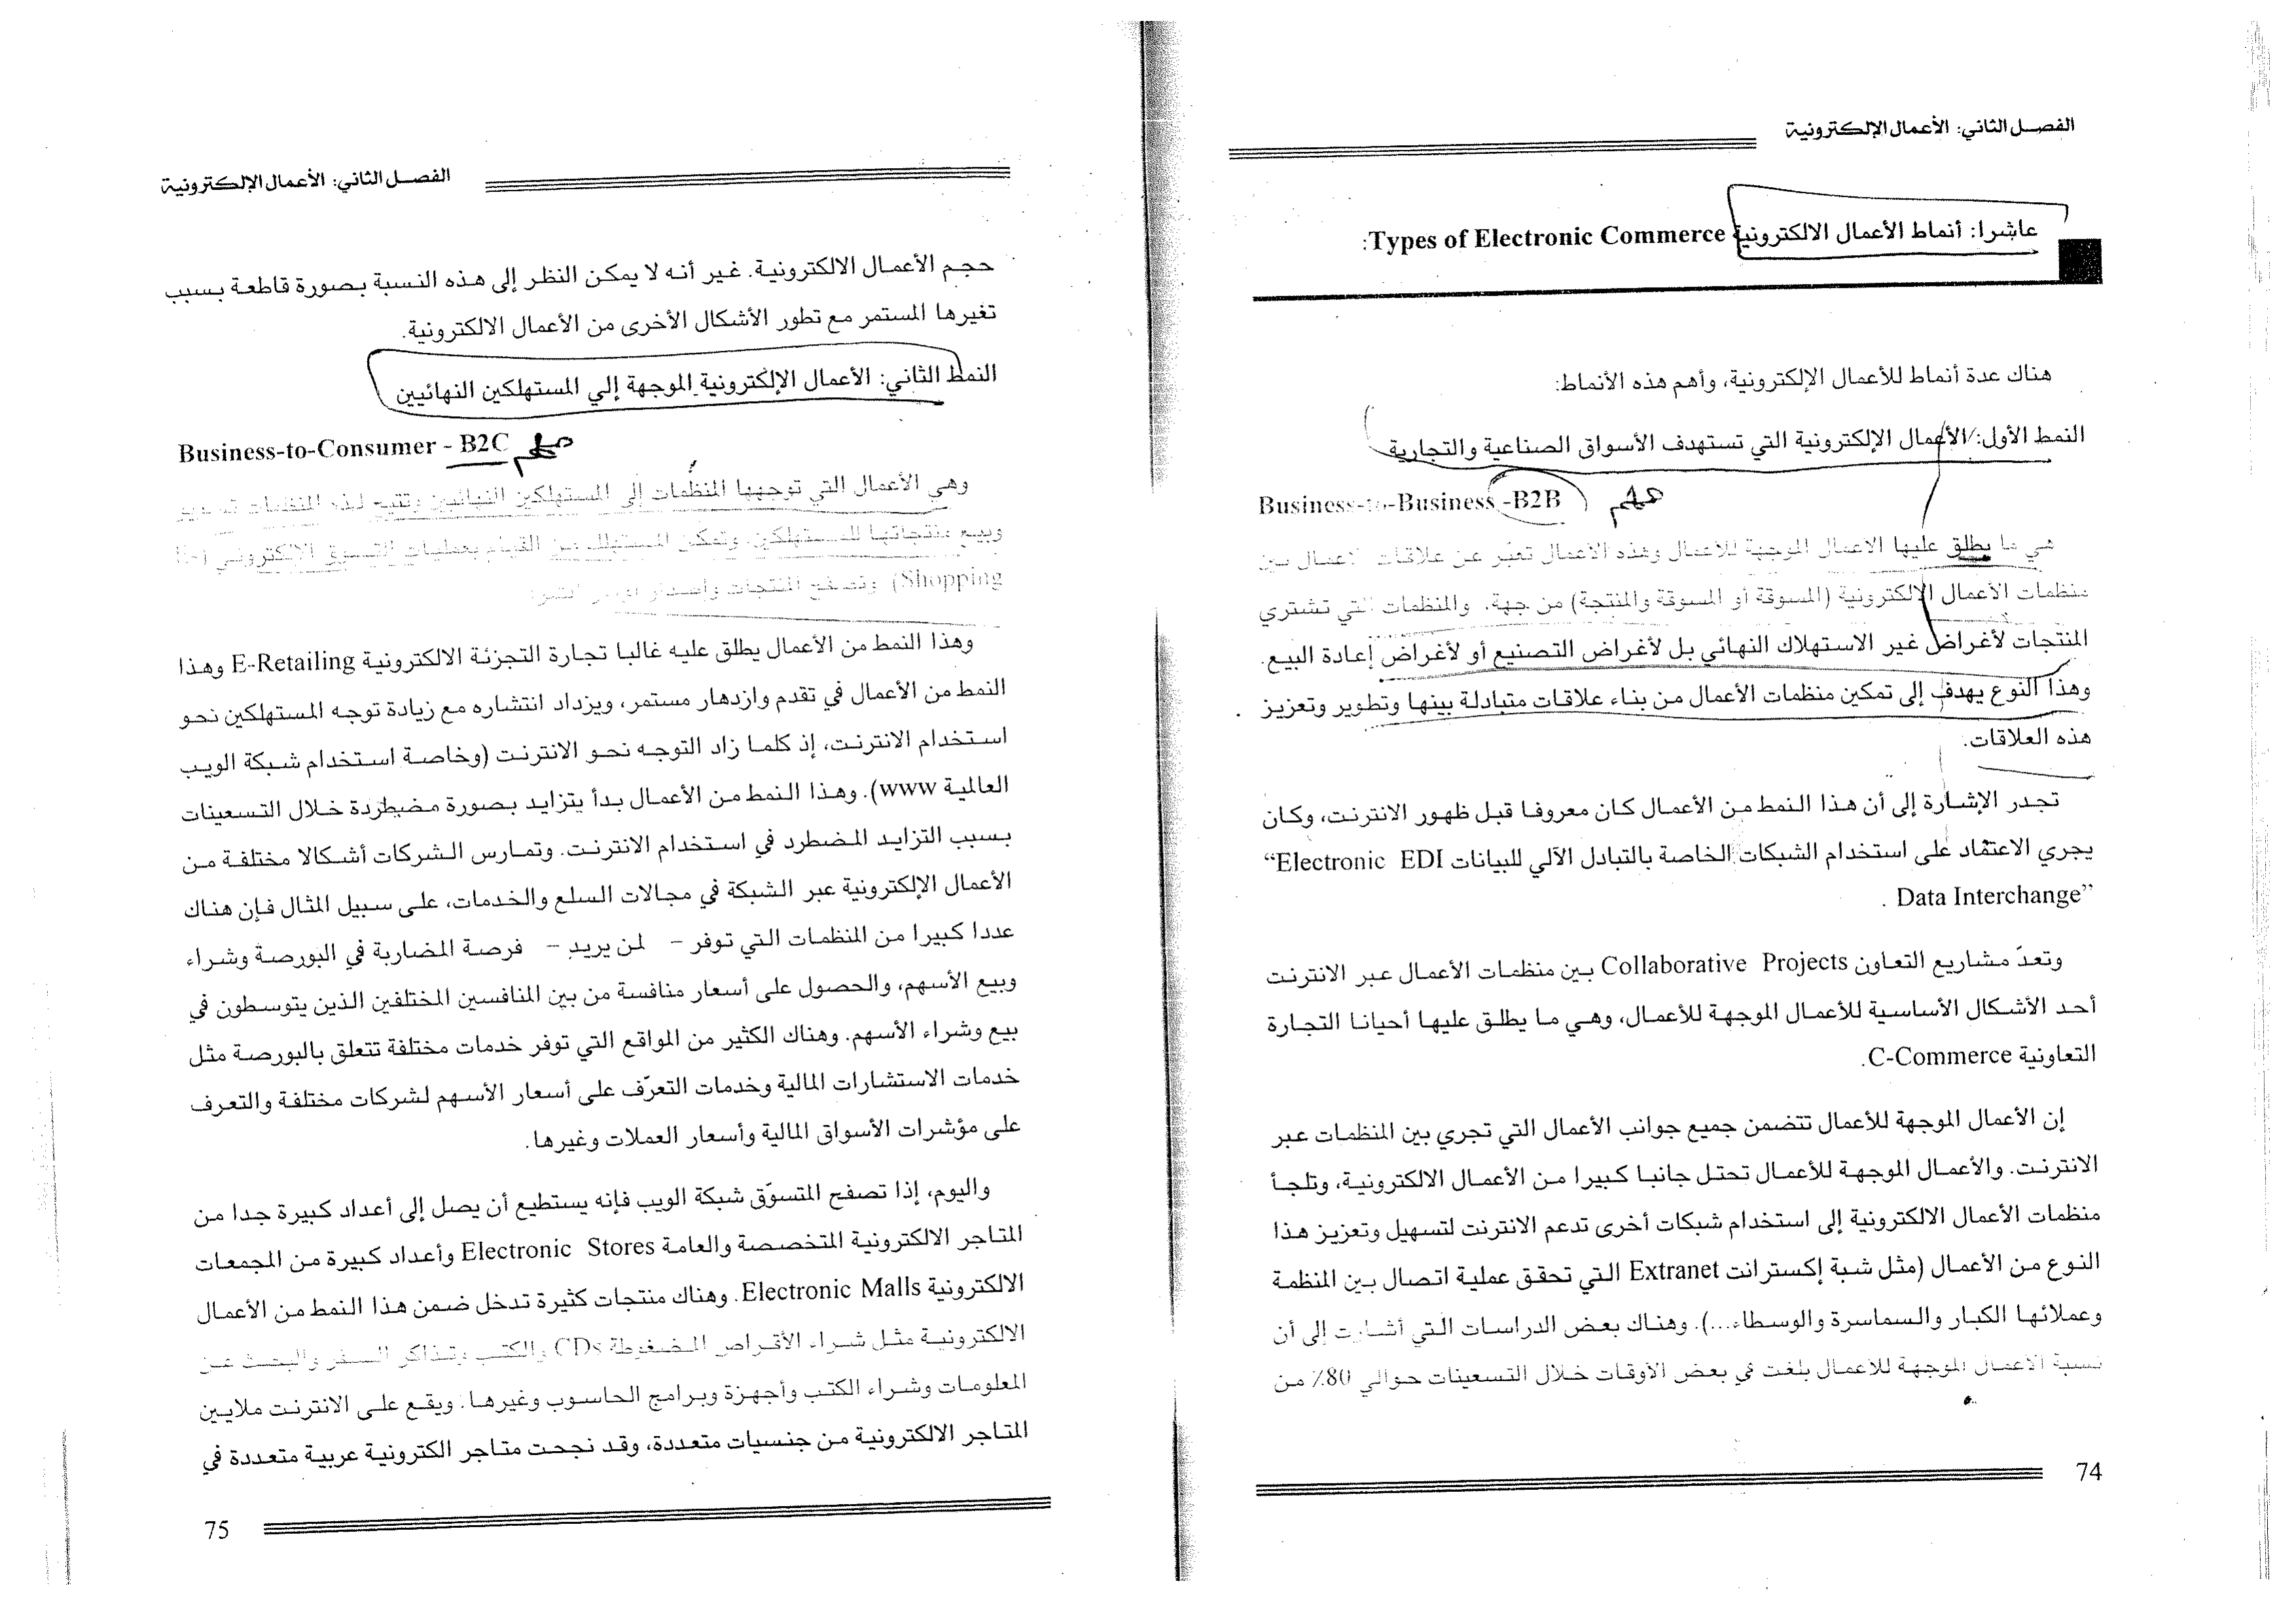 الفصل الثاني: الأعمال الإلكترونية
عاشرا: أنماط الأعمال الالكترونية Types of Electronic Commerce:
هناك عدة أنماط للأعمال الإلكترونية، وأهم هذه الأنماط:
النمط الأول: الأعمال الإلكترونية التي تستهدف الأسواق الصناعية والتجارية
Business-to-Business -B2B مهم
هي ما يطلق عليها الاعمال الموجهة للأعمال وهذه الأعمال تعبّر عن علاقات الاعمال بين
منظمات الأعمال الإلكترونية (المسوقة أو المسوقة والمنتجة) من جهة، والمنظمات التي تشتري
المنتجات لأغراض غير الاستهلاك النهائي بل لأغراض التصنيع أو لأغراض إعادة البيع.
وهذا النوع يهدف إلى تمكين منظمات الأعمال من بناء علاقات متبادلة بينها وتطوير وتعزيز
هذه العلاقات.
تجدر الإشارة إلى أن هذا النمط من الأعمال كان معروفا قبل ظهور الانترنت، وكان
يجري الاعتماد على استخدام الشبكات الخاصة بالتبادل الآلي للبيانات Electronic EDI“
Data Interchange” .
وتعدّ مشاريع التعاون Collaborative Projects بين منظمات الأعمال عبر الانترنت
أحد الأشكال الأساسية للأعمال الموجهة للأعمال، وهي ما يطلق عليها أحيانا التجارة
التعاونية C-Commerce.
إن الأعمال الموجهة للأعمال تتضمن جميع جوانب الأعمال التي تجري بين المنظمات عبر
الانترنت. والأعمال الموجهة للأعمال تحتل جانبا كبيرا من الأعمال الالكترونية، وتلجأ
منظمات الأعمال الالكترونية إلى استخدام شبكات أخرى تدعم الانترنت لتسهيل وتعزيز هذا
النوع من الأعمال (مثل شبة إكسترانت Extranet التي تحقق عملية اتصال بين المنظمة
وعملائها الكبار والسماسرة والوسطاء...). وهناك بعض الدراسات التي أشارت إلى أن
نسبة الاعمال الموجهة للأعمال بلغت في بعض الأوقات خلال التسعينات حوالي 80٪ من
74
الفصل الثاني: الأعمال الإلكترونية
حجم الأعمال الالكترونية. غير أنه لا يمكن النظر إلى هذه النسبة بصورة قاطعة بسبب
تغيرها المستمر مع تطور الأشكال الأخرى من الأعمال الالكترونية.
النمط الثاني: الأعمال الإلكترونية الموجهة إلي المستهلكين النهائيين
Business-to-Consumer - B2C مهم
وهي الأعمال التي توجهها المنظمات إلى المستهلكين النهائيين وتتيح لهذه المنظمات
وبيع منتجاتها للمستهلكين. وتمكن المستهلك من القيام بعمليات التسوق الالكتروني
Shopping) وتصفح المنتجات وإصدار أوامر الشراء
وهذا النمط من الأعمال يطلق عليه غالبا تجارة التجزئة الالكترونية E-Retailing وهذا
النمط من الأعمال في تقدم وازدهار مستمر، ويزداد انتشاره مع زيادة توجه المستهلكين نحو
استخدام الانترنت، إذ كلما زاد التوجه نحو الانترنت (وخاصة استخدام شبكة الويب
العالمية www). وهذا النمط من الأعمال بدأ يتزايد بصورة مضطردة خلال التسعينات
بسبب التزايد المضطرد في استخدام الانترنت. وتمارس الشركات أشكالا مختلفة من
الأعمال الإلكترونية عبر الشبكة في مجالات السلع والخدمات، على سبيل المثال فإن هناك
عددا كبيرا من المنظمات التي توفر – لمن يريد – فرصة المضاربة في البورصة وشراء
وبيع الأسهم، والحصول على أسعار منافسة من بين المنافسين المختلفين الذين يتوسطون في
بيع وشراء الأسهم. وهناك الكثير من المواقع التي توفر خدمات مختلفة تتعلق بالبورصة مثل
خدمات الاستشارات المالية وخدمات التعرّف على أسعار الأسهم لشركات مختلفة والتعرف
على مؤشرات الأسواق المالية وأسعار العملات وغيرها.
واليوم، إذا تصفح المتسوّق شبكة الويب فإنه يستطيع أن يصل إلى أعداد كبيرة جدا من
المتاجر الالكترونية المتخصصة والعامة Electronic Stores وأعداد كبيرة من المجمعات
الالكترونية Electronic Malls. وهناك منتجات كثيرة تدخل ضمن هذا النمط من الأعمال
الالكترونية مثل شراء الأقراص المضغوطة CDs والكتب وتذاكر السفر والبحث عن
المعلومات وشراء الكتب وأجهزة وبرامج الحاسوب وغيرها. ويقع على الانترنت ملايين
المتاجر الالكترونية من جنسيات متعددة، وقد نجحت متاجر الكترونية عربية متعددة في
75